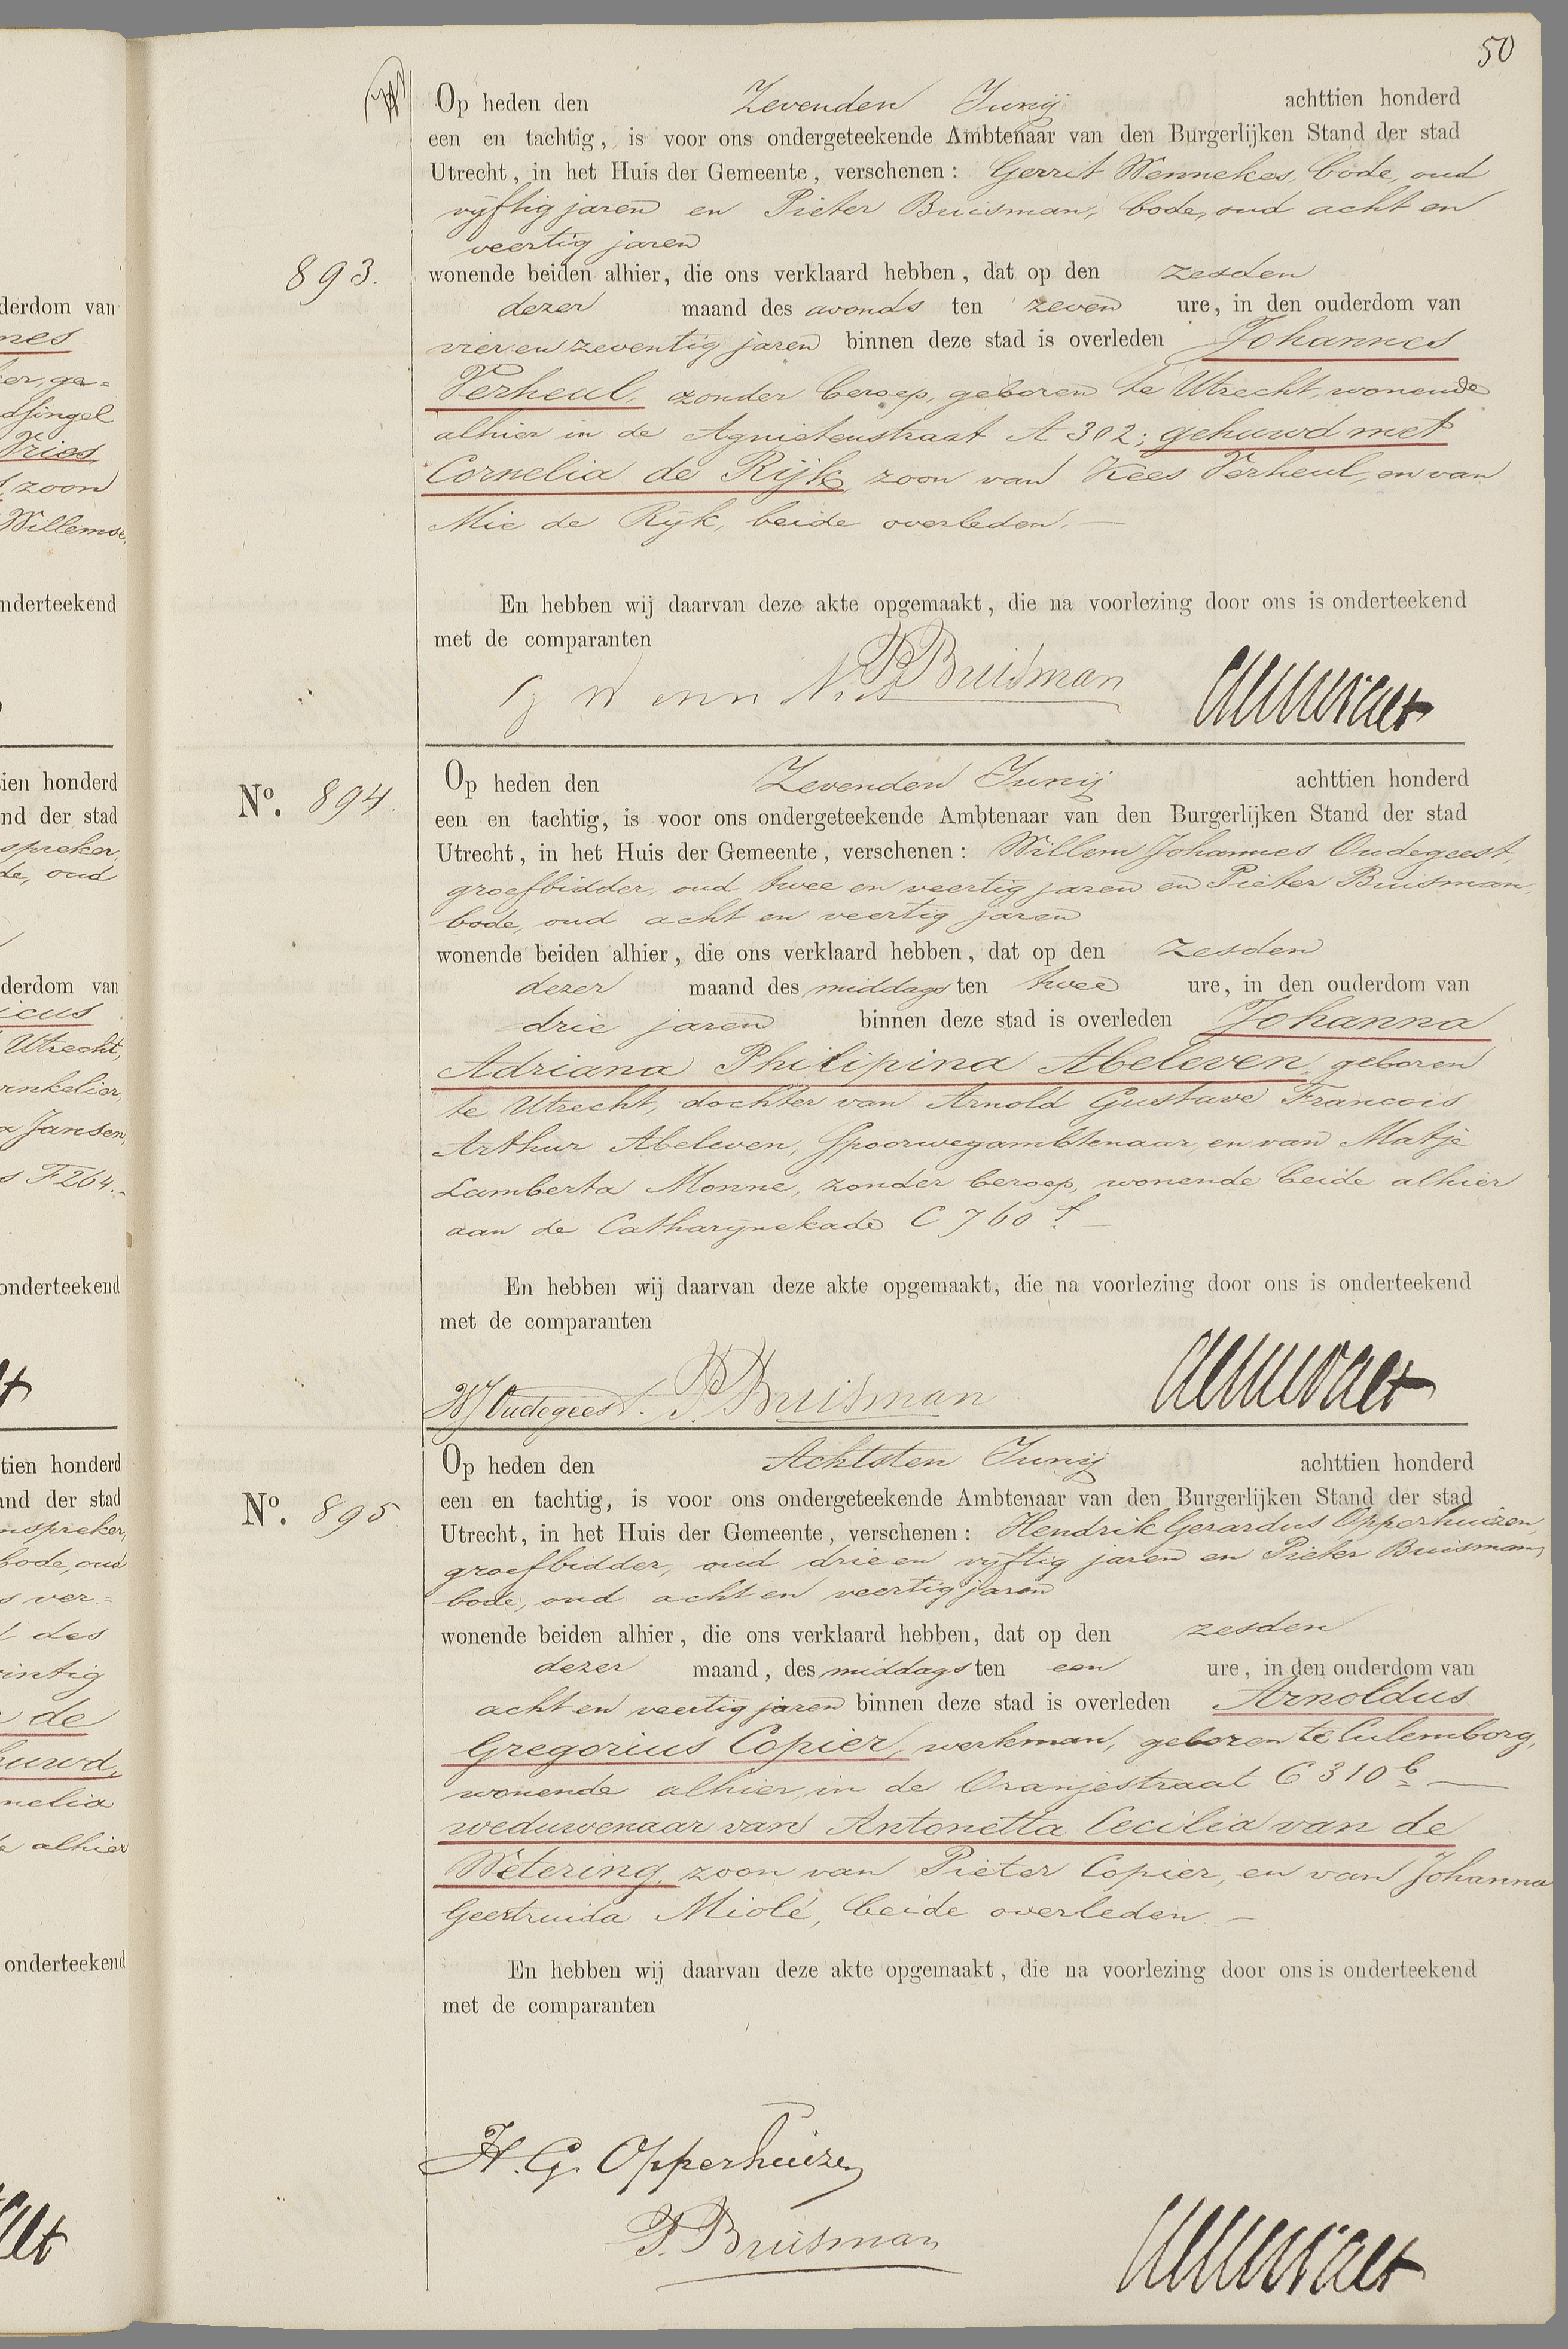 50
Op heden den Zevenden Junij achttien honderd
een en tachtig, is voor ons ondergeteekende Ambtenaar van den Burgerlijken Stand der stad
Utrecht, in het Huis der Gemeente, verschenen: Gerrit Wennekes, bode, oud
vijftig jaren en Pieter Buisman, bode, oud acht en
veertig jaren
893.
wonende beiden alhier, die ons verklaard hebben, dat op den zesden
dezer maand des avonds ten zeven ure, in den ouderdom van
vier en zeventig jaren binnen deze stad is overleden Johannes
Verheul, zonder beroep, geboren te Utrecht, wonende
alhier in de Agnietenstraat A 302; gehuwd met
Cornelia de Rijk, zoon van Kees Verheul, en van
Mie de Rijk, beide overleden. —
En hebben wij daarvan deze akte opgemaakt, die na voorlezing door ons is onderteekend
met de comparanten
P Buisman
No. 894.
Op heden den Zevenden Junij achttien honderd
een en tachtig, is voor ons ondergeteekende Ambtenaar van den Burgerlijken Stand der stad
Utrecht, in het Huis der Gemeente, verschenen: Willem Johannes Oudegeest,
groefbidder, oud twee en veertig jaren en Pieter Buisman,
bode, oud acht en veertig jaren
wonende beiden alhier, die ons verklaard hebben, dat op den zesden
dezer maand des middags ten twee ure, in den ouderdom van
drie jaren binnen deze stad is overleden Johanna
Adriana Philipina Abeleven, geboren
te Utrecht, dochter van Arnold Gustave Francois
Arthur Abeleven, Spoorwegambtenaar, en van Matje
Lamberta Monne, zonder beroep, wonende beide alhier
aan de Catharijnekade C 760 f —
En hebben wij daarvan deze akte opgemaakt, die na voorlezing door ons is onderteekend
met de comparanten
WJ Oudegeest. P. Buisman
No. 895
Op heden den Achtsten Junij achttien honderd
een en tachtig, is voor ons ondergeteekende Ambtenaar van den Burgerlijken Stand der stad
Utrecht, in het Huis der Gemeente, verschenen: Hendrik Gerardus Opperhuizen,
groefbidder, oud drie en vijftig jaren en Pieter Buisman,
bode, oud acht en veertig jaren
wonende beiden alhier, die ons verklaard hebben, dat op den zesden
dezer maand, des middags ten een ure, in den ouderdom van
acht en veertig jaren binnen deze stad is overleden Arnoldus
Gregorius Copier, werkman, geboren te Culemborg,
wonende alhier, in de Oranjestraat C 310 b —
weduwenaar van Antonetta Cecilia van de
Wetering, zoon van Pieter Copier, en van Johanna
Geertruida Miolé, beide overleden. —
En hebben wij daarvan deze akte opgemaakt, die na voorlezing door ons is onderteekend
met de comparanten
H. G. Opperhuizen
P. Buisman